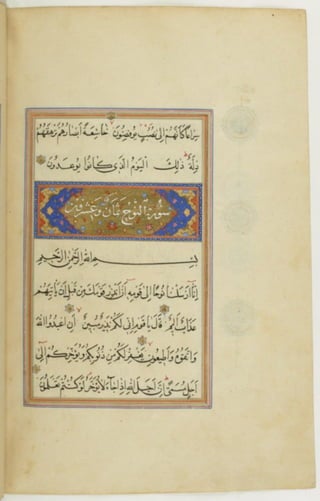 سِرَاعًا كَأَنَّهُمْ إِلَى نُصُبٍ يُوفِضُونَ خَاشِعَةً أَبْصَارُهُمْ تَرْهَقُهُمْ
ذِلَّةٌ ذَلِكَ الْيَوْمُ الَّذِي كَانُوا يُوعَدُونَ
سورة النوح ثمان وعشرون
بِسْمِ اللهِ الرَّحْمَنِ الرَّحِيمِ
إِنَّا أَرْسَلْنَا نُوحًا إِلَى قَوْمِهِ أَنْ أَنْذِرْ قَوْمَكَ مِنْ قَبْلِ أَنْ يَأْتِيَهُمْ
عَذَابٌ أَلِيمٌ قَالَ يَا قَوْمِ إِنِّي لَكُمْ نَذِيرٌ مُبِينٌ أَنِ اعْبُدُوا اللهَ
وَاتَّقُوهُ وَأَطِيعُونِ يَغْفِرْ لَكُمْ مِنْ ذُنُوبِكُمْ وَيُؤَخِّرْكُمْ إِلَى
أَجَلٍ مُسَمًّى إِنَّ أَجَلَ اللهِ إِذَا جَاءَ لَا يُؤَخَّرُ لَوْ كُنْتُمْ تَعْلَمُونَ